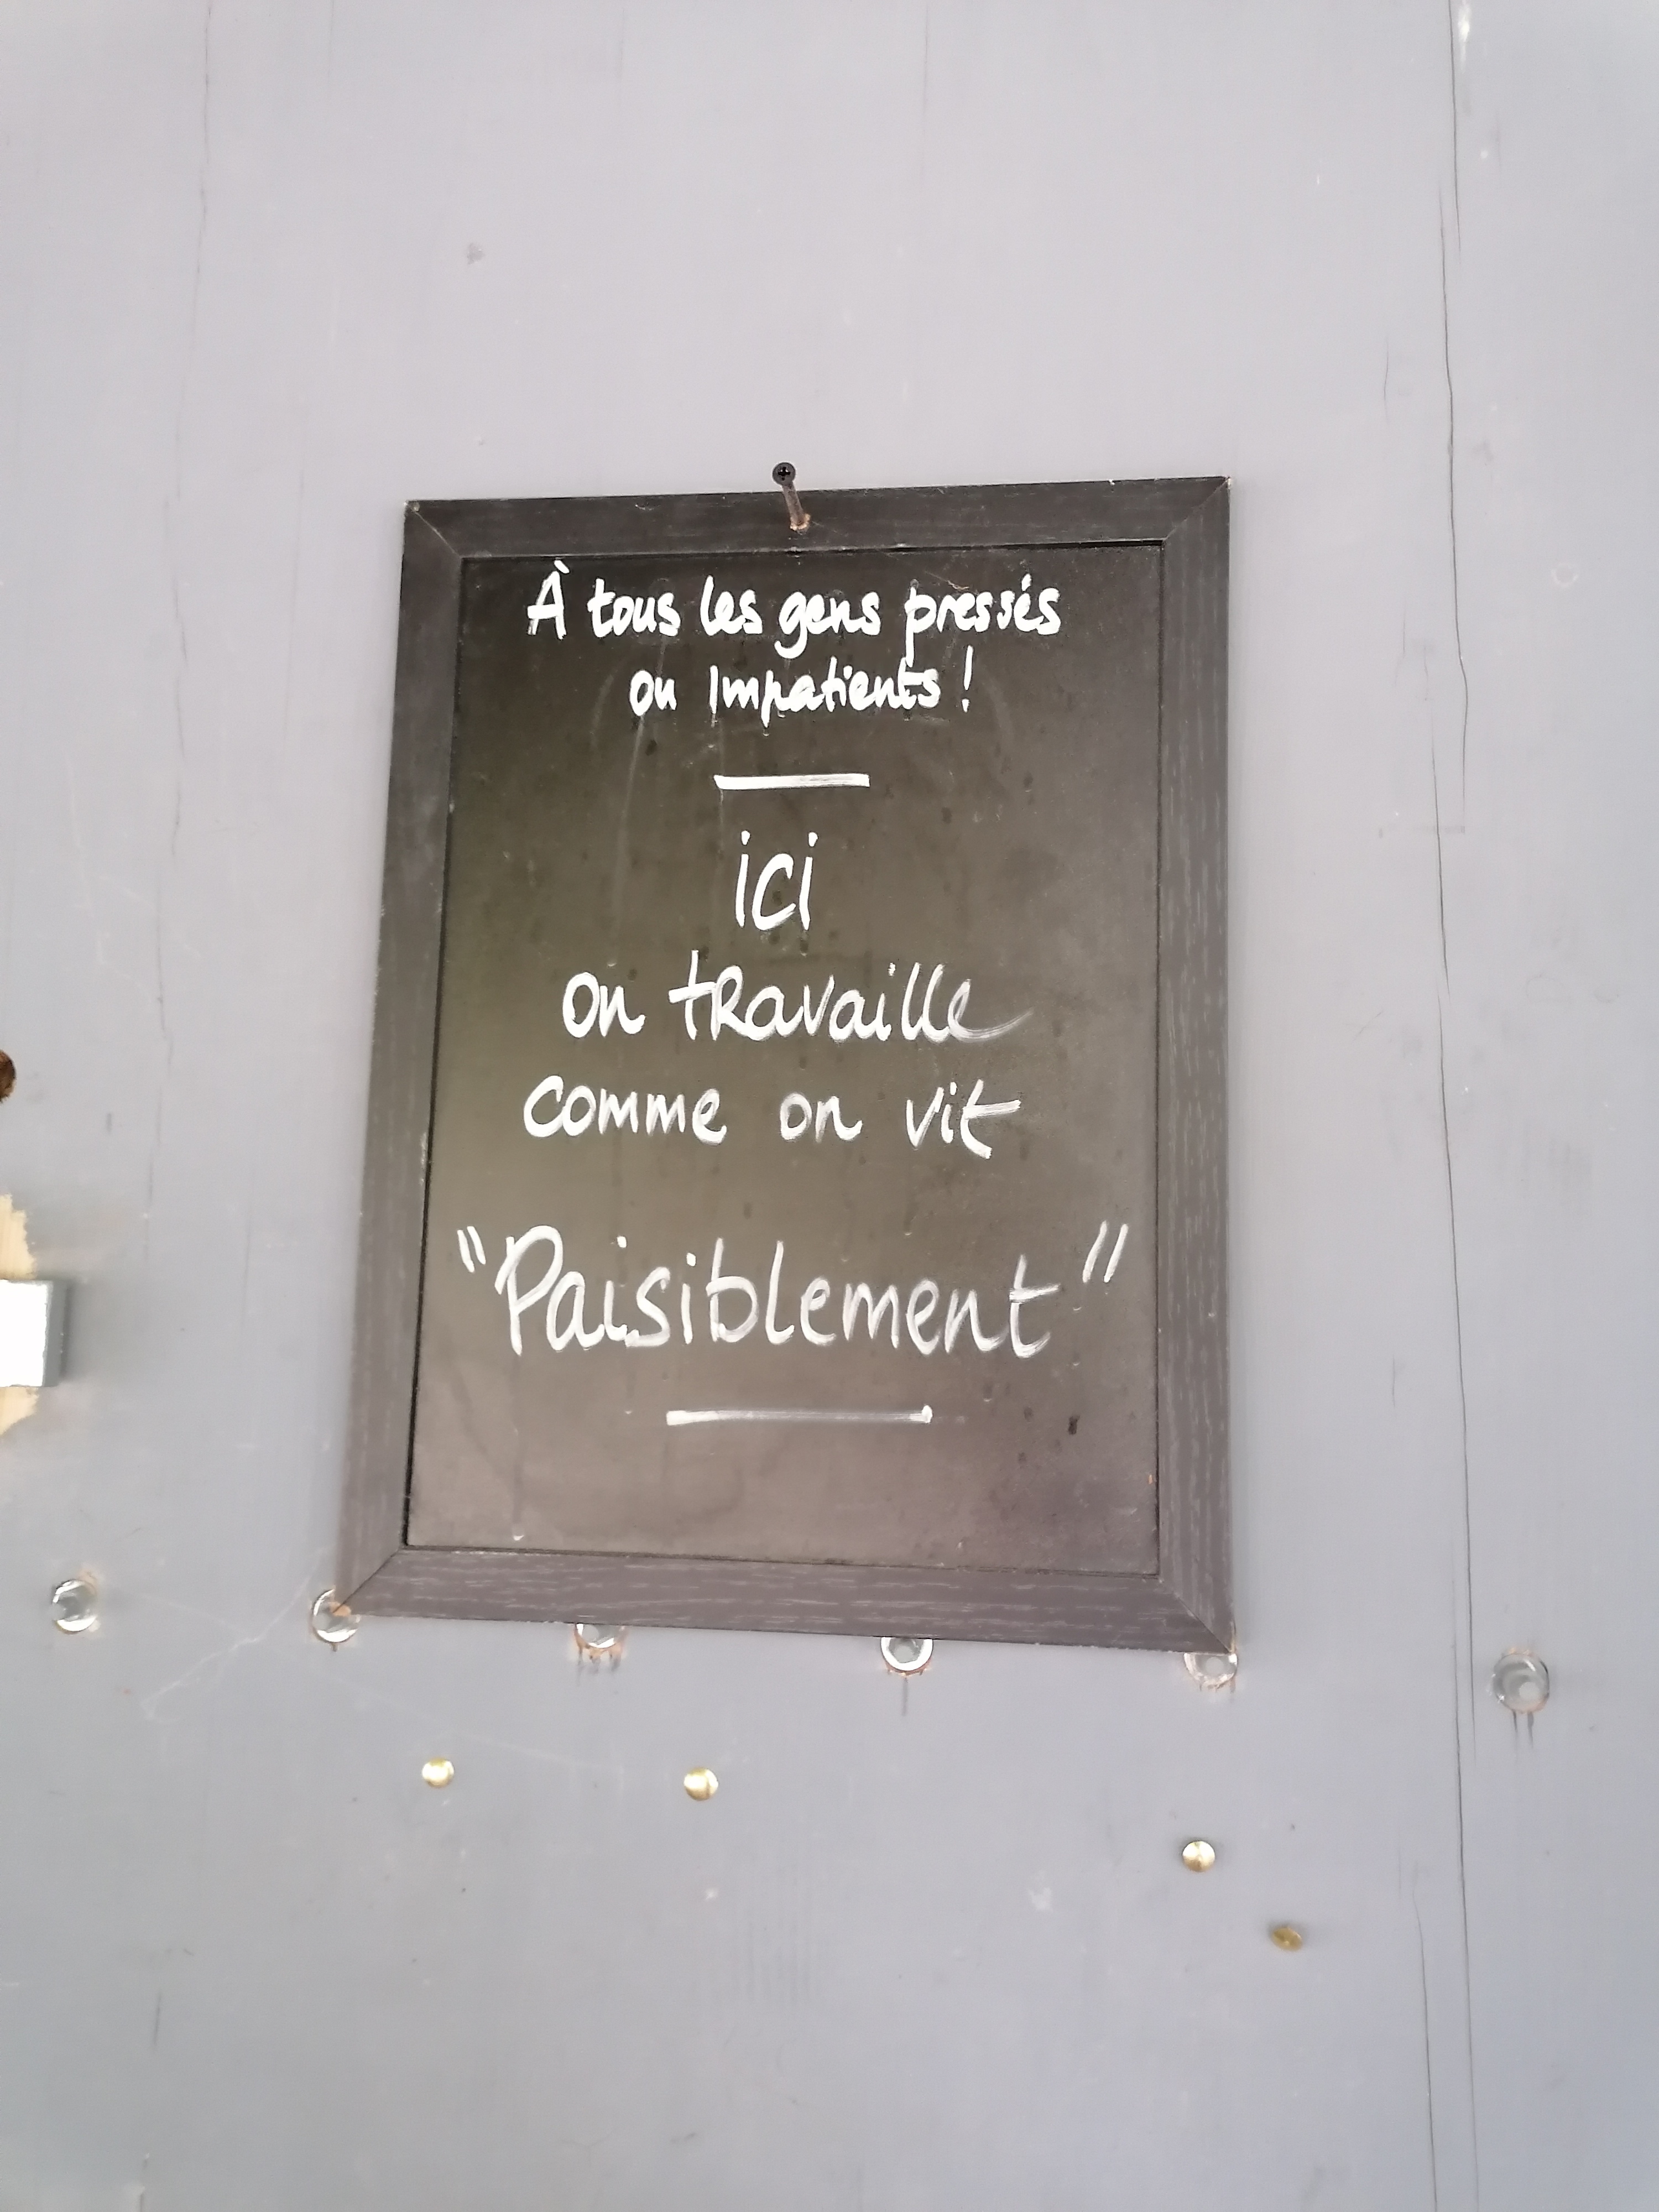 À tous les gens pressés
ou Impatients !
ici
on travaille
comme on vit
"Paisiblement"